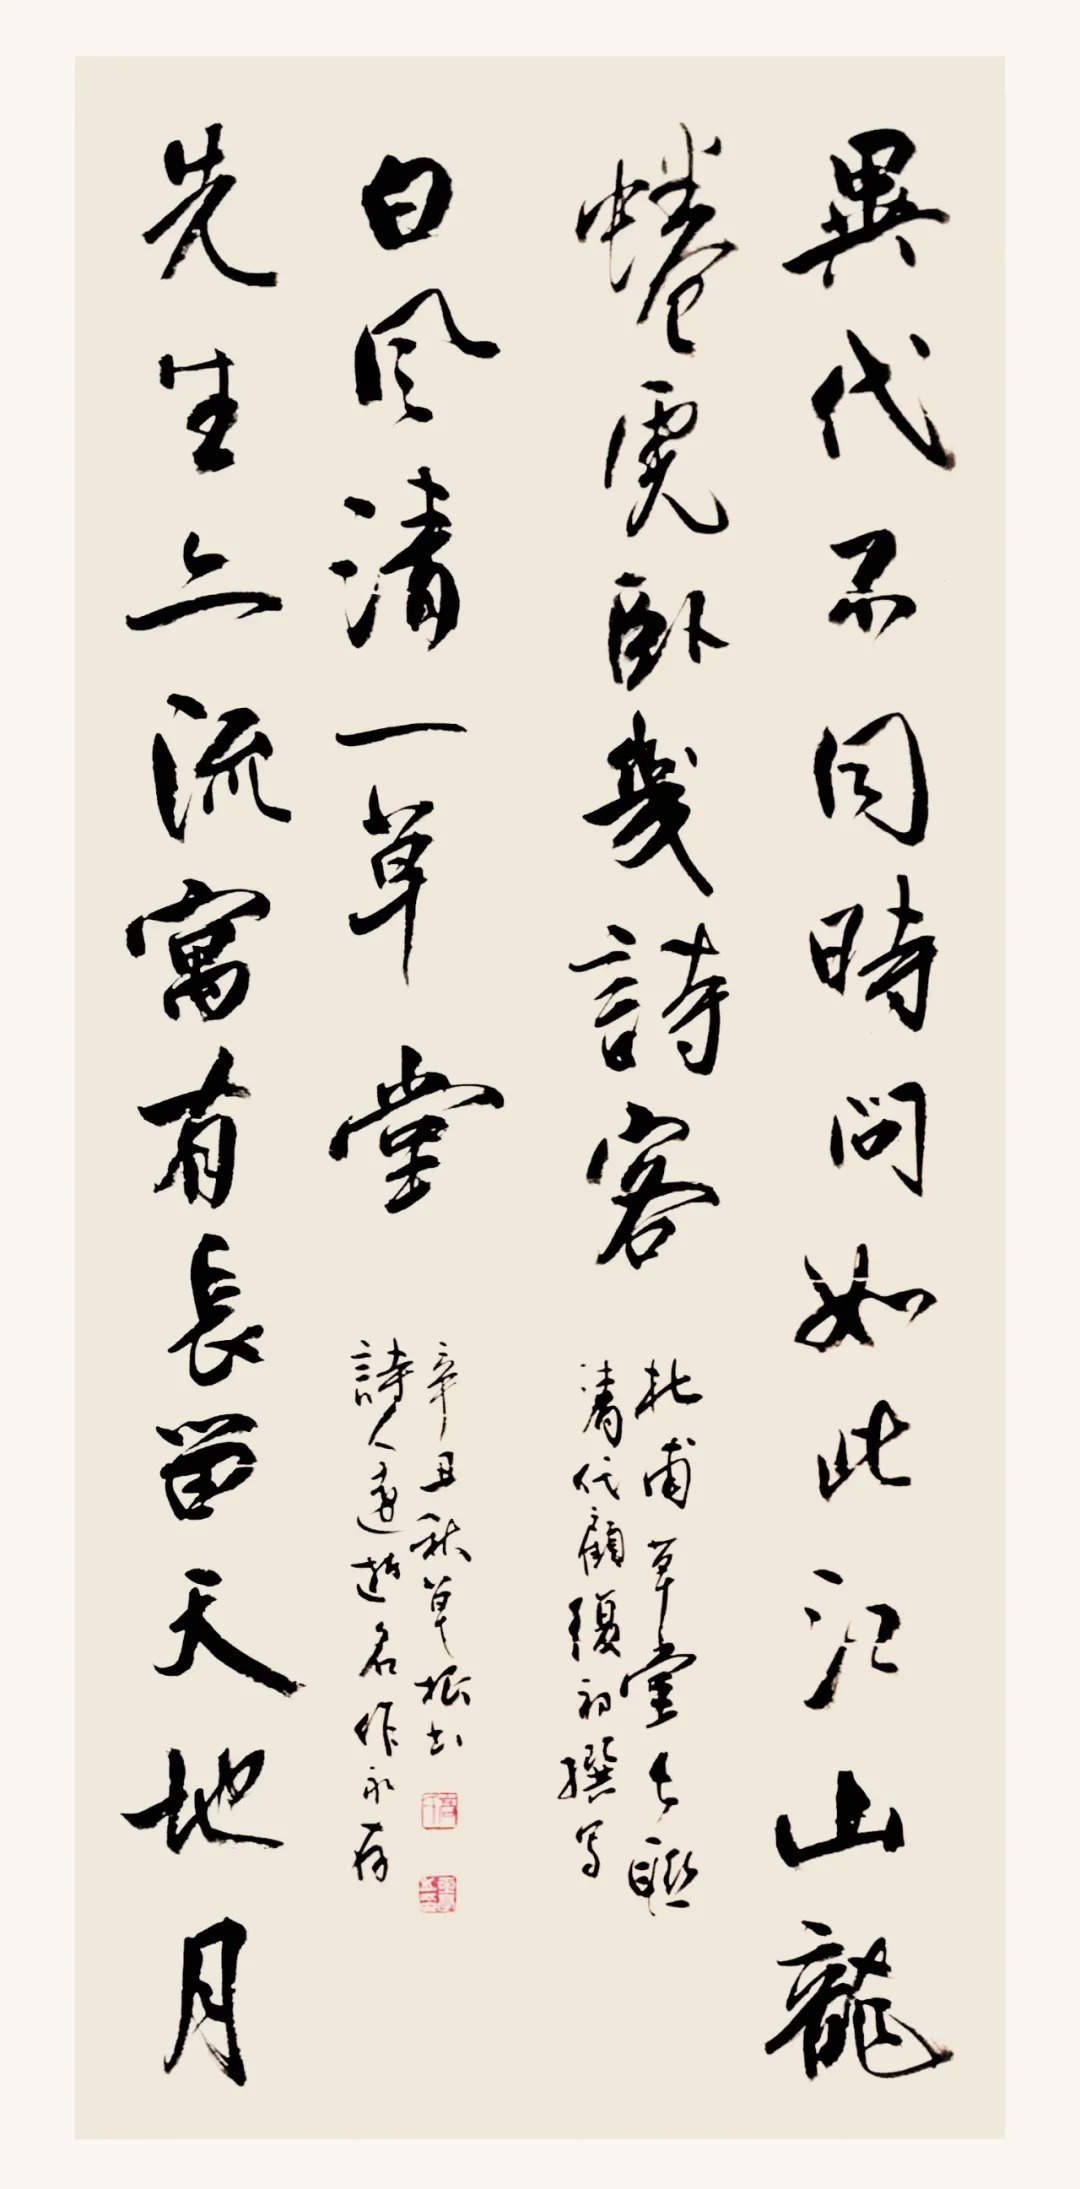 異代不同時問如此江山龍
蜷虎卧幾詩客
杜甫草堂长聯
清代顧復初撰写
先生亦流寓有長留天地月
白風清一草堂
詩人遠逝名作永存
辛丑秋草根书